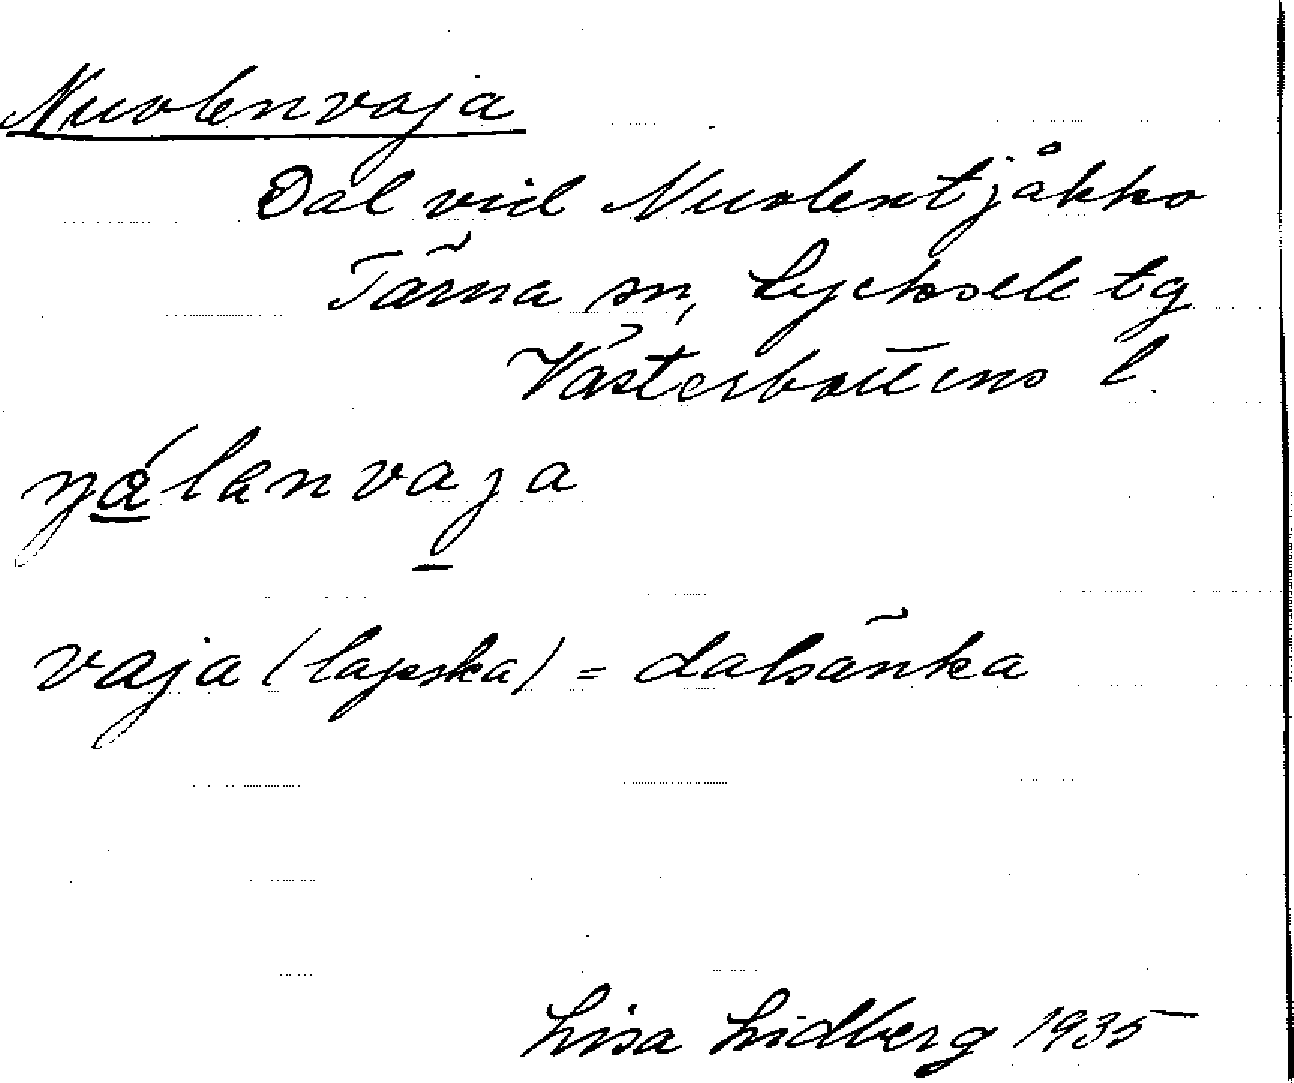 Nuolenvaja
Dal vid Nuolentjåkko
Tärna sn, Lycksele tg
Västerbottens l.
vaja (lapska) = dalsänka
Lisa Lidberg 1935